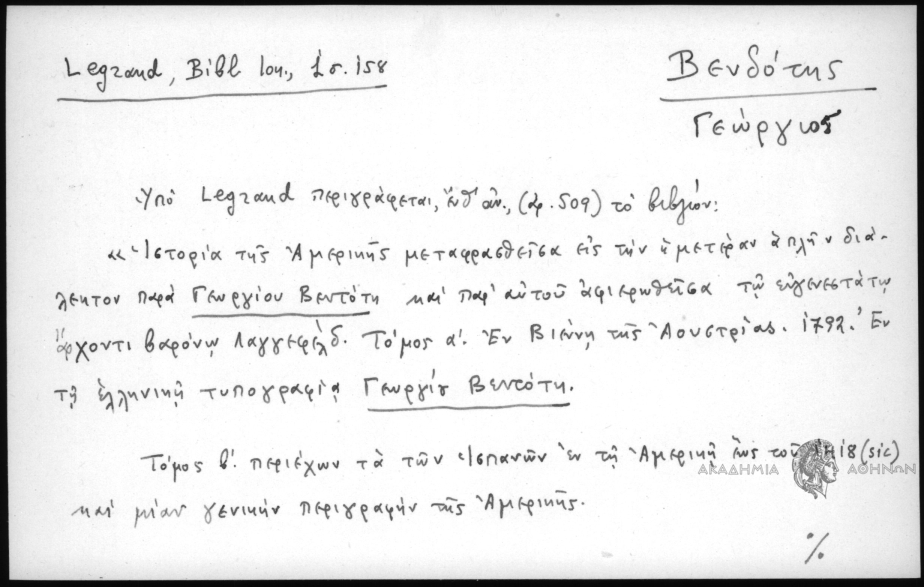 Legrand, Bibl Ion., 1 σ. 158
Βενδότης
Γεώργιος
Ὑπὸ Legrand περιγράφεται, ἔνθ' ἀν., (ἀρ. 509) τὸ βιβλίον:
« Ἱστορία τῆς Ἀμερικῆς μεταφρασθεῖσα εἰς τὴν ἡμετέραν ἁπλῆν διά-
λεκτον παρὰ Γεωργίου Βεντότη καὶ παρ' αὐτοῦ ἀφιερωθεῖσα τῷ εὐγενεστάτῳ
ἄρχοντι βαρόνῳ Λαγγεφελδ. Τόμος α'. Ἐν Βιέννῃ τῆς Ἀουστρίας. 1792. Ἐν
τῇ ἑλληνικῇ τυπογραφίᾳ Γεωργίου Βεντότη.
Τόμος β'. περιέχων τὰ τῶν Ἱσπανῶν ἐν τῇ Ἀμερικῇ ἕως τοῦ (sic)
καὶ μίαν γενικὴν περιγραφὴν τῆς Ἀμερικῆς.
ΑΚΑΔΗΜΙΑ ΑΘΗΝΩΝ
%